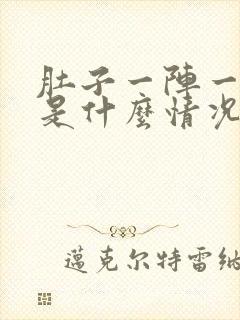 肚子一陣一
是什麼情況
邁克尔特雷納